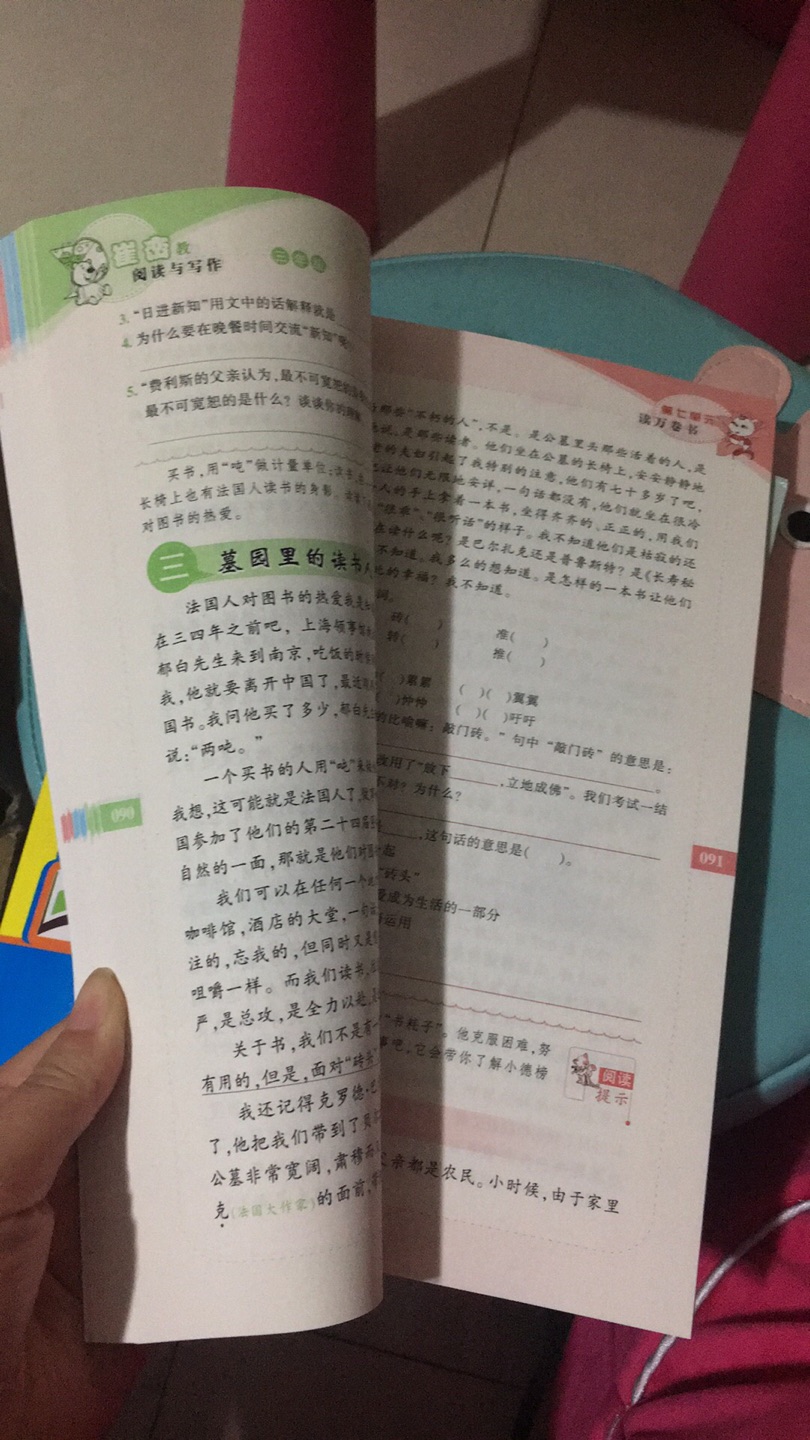 崔峦教
阅读与写作
三年级
3. “日进新知”用文中的话解释就是
4. 为什么要在晚餐时间交流“新知”呢?
5. “费利斯的父亲认为,最不可宽恕的
最不可宽恕的是什么?谈谈你的
买书,用“吨”做计量单位;
长椅上也有法国人读书的身影。
对图书的热爱。
三 墓园里的读书
法国人对图书的热爱我是
在三四年之前吧,上海领事馆
郁白先生来到南京,吃饭的时
我,他就要离开中国了,最近
国书。我问他买了多少,郁白先
说:“两吨。”
一个买书的人用“吨”来
我想,这可能就是法国人了,
国参加了他们的第二十四届
自然的一面,那就是他们对图
我们可以在任何一个
咖啡馆,酒店的大堂,一
注的,忘我的,但同时又是
咀嚼一样。而我们读书,
严,是总攻,是全力以赴,
关于书,我们不是有一
有用的,但是,面对“砖头
我还记得克罗德·巴
了,他把我们带到了
公墓非常宽阔,肃穆而
克(法国大作家)的面前,
090
第七单元
读万卷书
那些“不朽的人”,不是。是公墓里头那些活着的人,是
说,是那些读者。他们坐在公墓的长椅上,安安静静地
的夫妇引起了我特别的注意,他们有七十多岁了吧,
让他们无限地安详,一句话都没有,他们就坐在很冷
人的手上拿着一本书,坐得齐齐的、正正的,用我们
“很乖”、“很听话”的样子。我不知道他们是枯寂的还
在读什么呢?是巴尔扎克还是普鲁斯特?是《长寿秘
不知道。我多么的想知道。是怎样的一本书让他们
的幸福?我不知道。
词。
砖( ) 准( )
转( ) 推( )
)累累 ( )( )翼翼
)忡忡 ( )( )吁吁
的比喻嘛:敲门砖。”句中“敲门砖”的意思是:
。
改用了“放下______,立地成佛”。我们考试一结
不对?为什么?
______,这句话的意思是( )。
起
“砖头”
成为生活的一部分
运用
“书耗子”。他克服困难,努
事吧,它会带你了解小德榜
阅读
提示
亲都是农民。小时候,由于家里
091